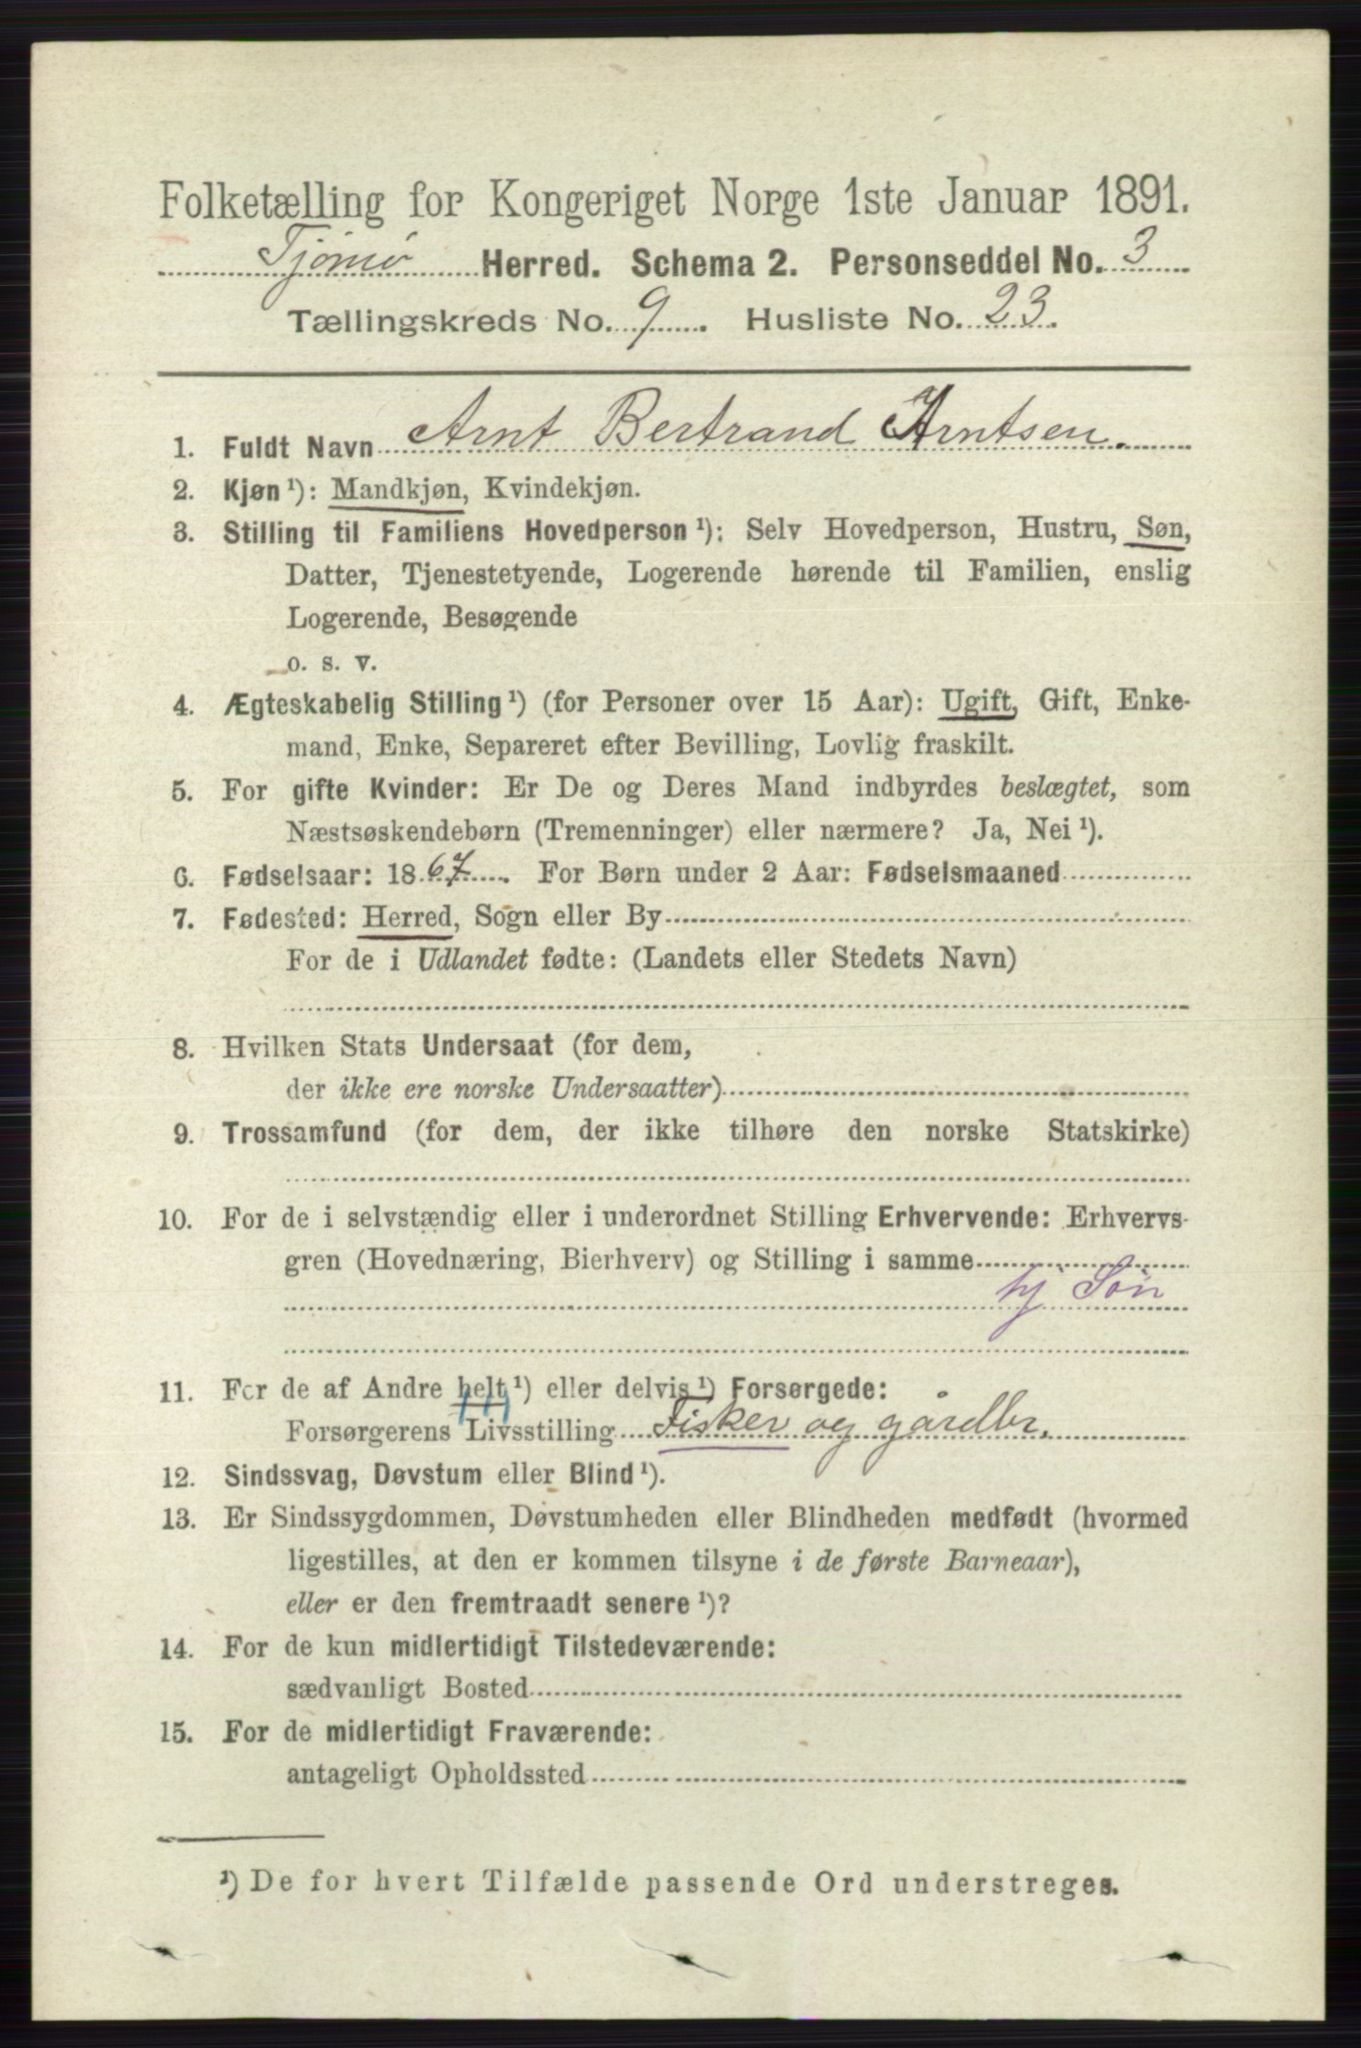 Folketælling for Kongeriget Norge 1ste Januar 1891.
Tjømø Herred. Schema 2. Personseddel No. 3
Tællingskreds No. 9. Husliste No. 23.
1. Fuldt Navn Arnt Bertrand Arntsen.
2. Kjøn¹): Mandkjøn, Kvindekjøn.
3. Stilling til Familiens Hovedperson¹): Selv Hovedperson, Hustru, Søn,
Datter, Tjenestetyende, Logerende hørende til Familien, enslig
Logerende, Besøgende
o. s. v.
4. Ægteskabelig Stilling¹) (for Personer over 15 Aar): Ugift, Gift, Enke-
mand, Enke, Separeret efter Bevilling, Lovlig fraskilt.
5. For gifte Kvinder: Er De og Deres Mand indbyrdes beslægtet, som
Næstsøskendebørn (Tremenninger) eller nærmere? Ja, Nei¹).
6. Fødselsaar: 1867. For Børn under 2 Aar: Fødselsmaaned
7. Fødested: Herred, Sogn eller By
For de i Udlandet fødte: (Landets eller Stedets Navn)
8. Hvilken Stats Undersaat (for dem,
der ikke ere norske Undersaatter)
9. Trossamfund (for dem, der ikke tilhøre den norske Statskirke)
10. For de i selvstændig eller i underordnet Stilling Erhvervende: Erhvervs-
gren (Hovednæring, Bierhverv) og Stilling i samme
hj Søn
11. For de af Andre helt¹) eller delvis¹) Forsørgede:
Forsørgerens Livsstilling Fisker og gårdbr.
12. Sindssvag, Døvstum eller Blind¹).
13. Er Sindssygdommen, Døvstumheden eller Blindheden medfødt (hvormed
ligestilles, at den er kommen tilsyne i de første Barneaar),
eller er den fremtraadt senere¹)?
14. For de kun midlertidigt Tilstedeværende:
sædvanligt Bosted
15. For de midlertidigt Fraværende:
antageligt Opholdssted
¹) De for hvert Tilfælde passende Ord understreges.